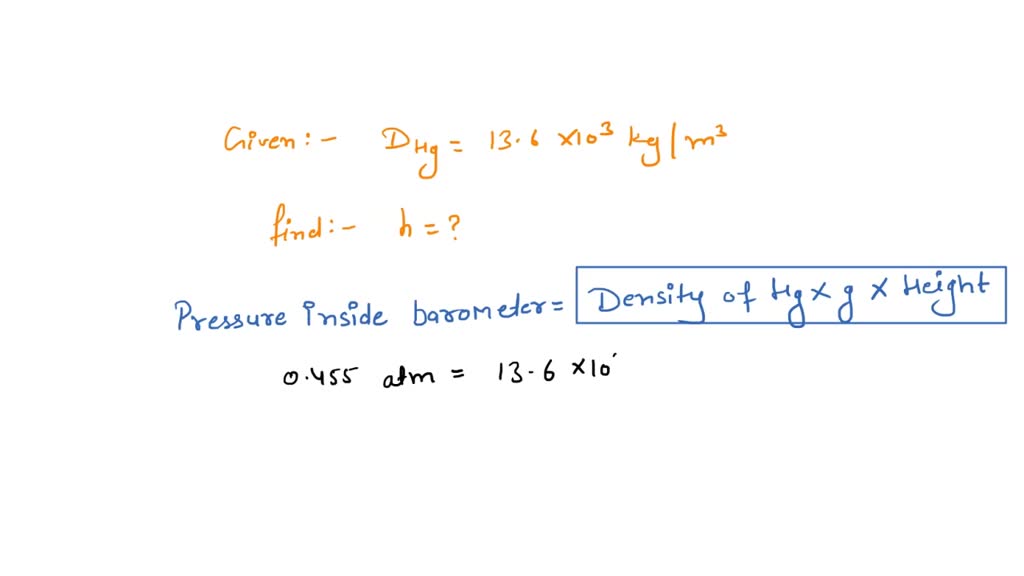 Given:- D Hg = 13.6 ×10³ kg/m³
find:- h = ?
Pressure inside barometer = Density of Hg × g × Height
0.455 atm = 13.6 ×10